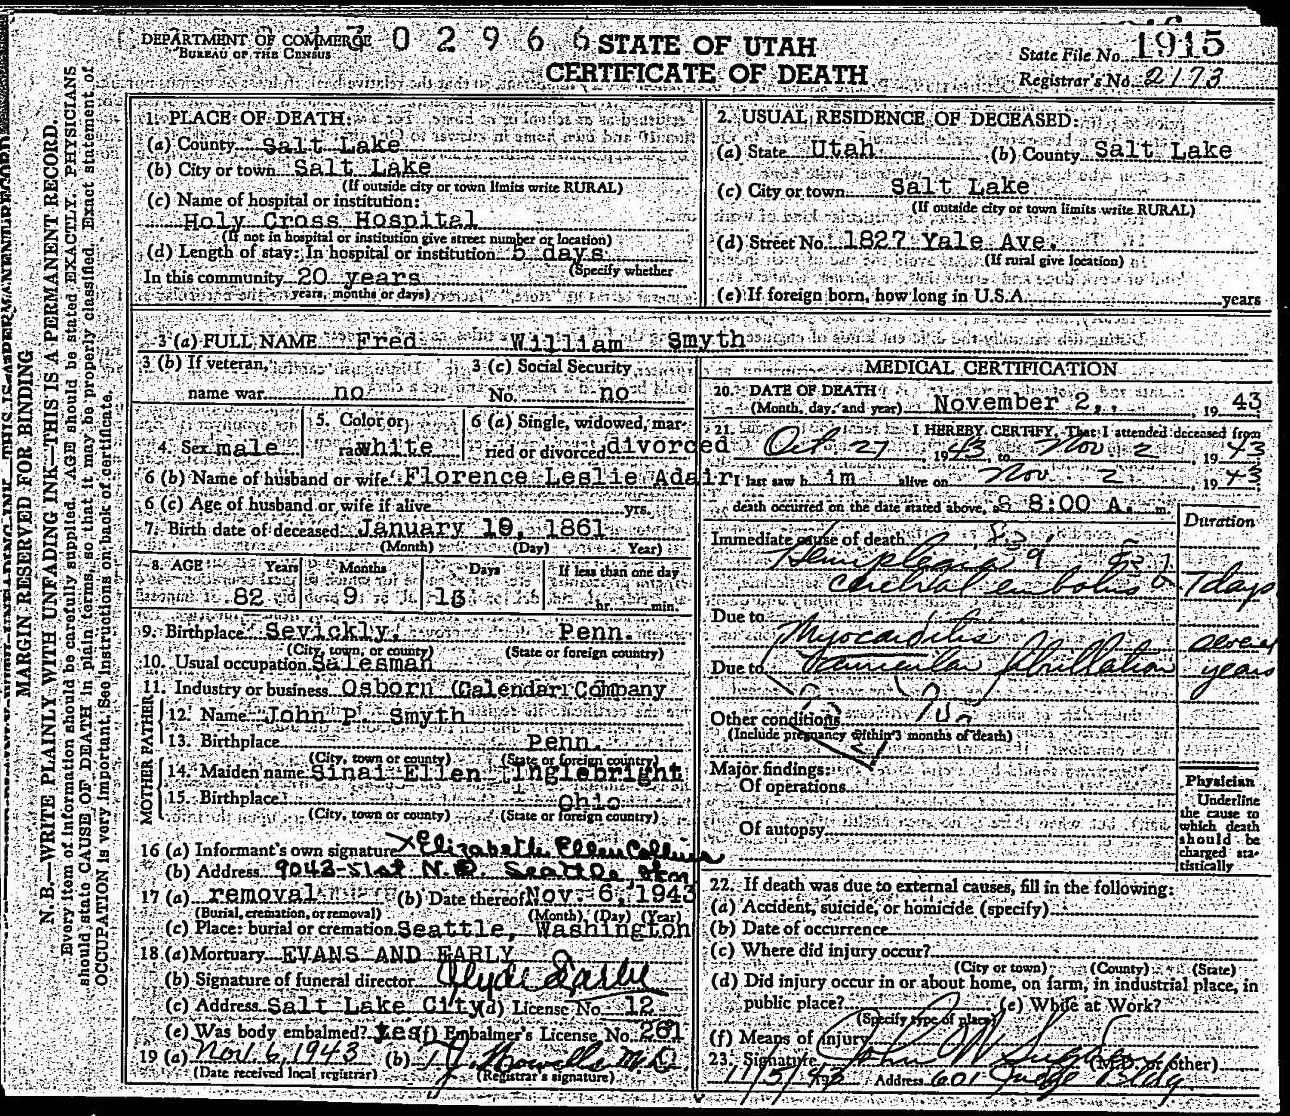 DEPARTMENT OF COMMERCE
BUREAU OF THE CENSUS
0 2 9 6 6
STATE OF UTAH
CERTIFICATE OF DEATH
State File No. 1915
Registrar's No. 2173
MARGIN RESERVED FOR BINDING
N. B.—WRITE PLAINLY WITH UNFADING INK—THIS IS A PERMANENT RECORD.
Every item of information should be carefully supplied. AGE should be stated EXACTLY. PHYSICIANS
should state CAUSE OF DEATH in plain terms, so that it may be properly classified. Exact statement of
OCCUPATION is very important. See instructions on back of certificate.
1. PLACE OF DEATH:
(a) County Salt Lake
(b) City or town Salt Lake
(If outside city or town limits write RURAL)
(c) Name of hospital or institution:
Holy Cross Hospital
(If not in hospital or institution give street number or location)
(d) Length of stay: In hospital or institution 5 days
(Specify whether
In this community 20 years
years, months or days)
2. USUAL RESIDENCE OF DECEASED:
(a) State Utah (b) County Salt Lake
(c) City or town Salt Lake
(If outside city or town limits write RURAL)
(d) Street No. 1827 Yale Ave.
(If rural give location)
(e) If foreign born, how long in U.S.A. years
3 (a) FULL NAME Fred William Smyth
3 (b) If veteran, 3 (c) Social Security
name war no No. no
4. Sex male 5. Color or race white 6 (a) Single, widowed, married or divorced divorced
6 (b) Name of husband or wife Florence Leslie Adair
6 (c) Age of husband or wife if alive yrs.
7. Birth date of deceased January 19, 1861
(Month) (Day) Year)
8. AGE Years Months Days If less than one day
82 9 hr. min.
9. Birthplace Sevickly, Penn.
(City, town, or county) (State or foreign country)
10. Usual occupation Salesman
11. Industry or business Osborn Calendar Company
FATHER
12. Name John P. Smyth
13. Birthplace Penn.
(City, town or county) (State or foreign country)
MOTHER
14. Maiden name Sinai Ellen Inglebright
15. Birthplace Ohio
(City, town or county) (State or foreign country)
16 (a) Informant's own signature X Elizabeth Ellen Collins
(b) Address 9043-51st N.E. Seattle,
17 (a) removal (b) Date thereof Nov. 6, 1943
(Burial, cremation, or removal) (Month) (Day) (Year)
(c) Place: burial or cremation Seattle, Washington
18 (a) Mortuary EVANS AND EARLY
(b) Signature of funeral director Clyde Early
(c) Address Salt Lake City (d) License No. 12
(e) Was body embalmed? Yes (f) Embalmer's License No. 261
19 (a) Nov. 6, 1943 (b) T.J. Howells M.D.
(Date received local registrar) (Registrar's signature)
MEDICAL CERTIFICATION
20. DATE OF DEATH
(Month, day, and year) November 2, , 19 43
21. I HEREBY CERTIFY, That I attended deceased from
Oct 27, 1943, to Nov 2, 1943
I last saw h im alive on Nov. 2, 1943
death occurred on the date stated above, at 8:00 A. m.
Duration
Immediate cause of death
Hemiplegia
cerebral embolus 7 days
Due to Myocarditis several
Due to auricular fibrillation years
Other conditions
(Include pregnancy within 3 months of death)
Major findings:
Of operations
Of autopsy
Physician
Underline
the cause to
which death
should be
charged sta-
tistically
22. If death was due to external causes, fill in the following:
(a) Accident, suicide, or homicide (specify)
(b) Date of occurrence
(c) Where did injury occur?
(City or town) (County) (State)
(d) Did injury occur in or about home, on farm, in industrial place, in
public place? (e) While at Work?
(Specify type of place)
(f) Means of injury
23. Signature John W (M.D. or other)
11/5/43 Address 601 Judge Bldg.